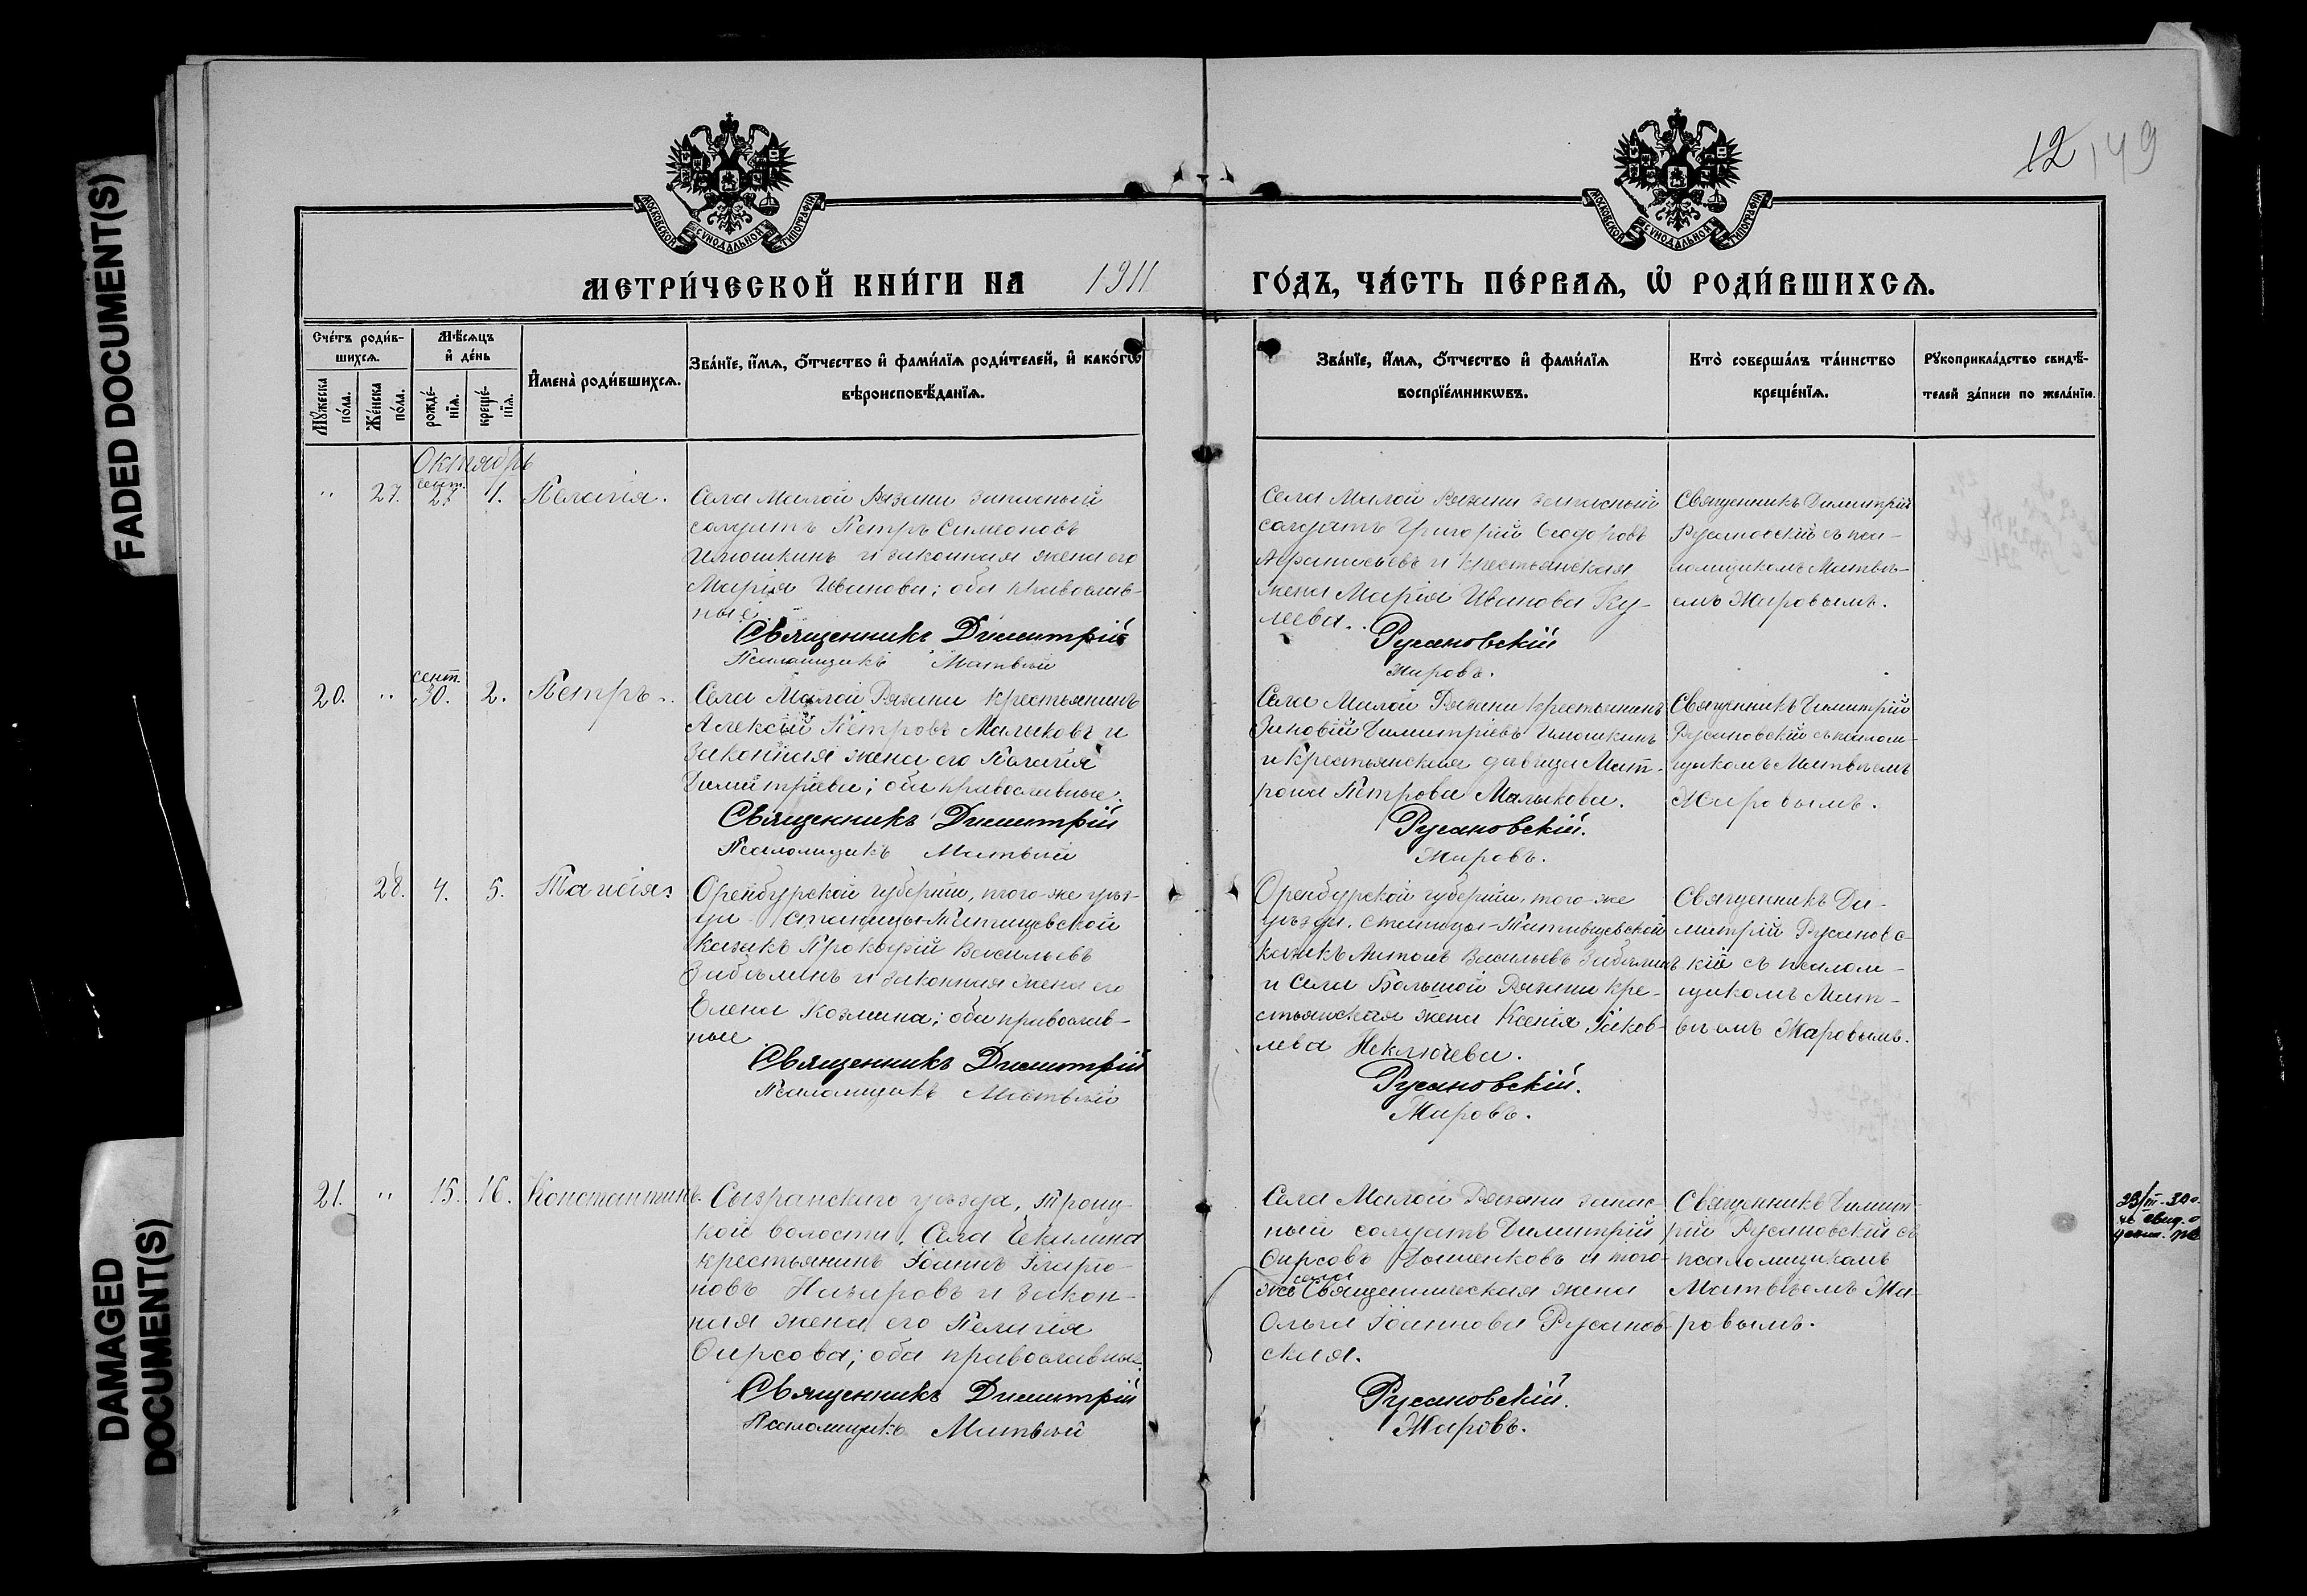 FADED DOCUMENT(S)
DAMAGED DOCUMENT(S)
12 149
МОСКОВСКОЙ СѴНОДАЛЬНОЙ ТИПОГРАФІИ
МОСКОВСКОЙ СѴНОДАЛЬНОЙ ТИПОГРАФІИ
МЕТРИ́ЧЕСКОЙ КНИ́ГИ НА 1911 ГО́ДЪ, ЧА́СТЬ ПЕ́РВАѦ, Ѽ РОДИ́ВШИХСѦ.
Сче́тъ роди́в-
шихсѧ.
Мѣ́сѧцъ
и҆ де́нь
Мꙋ́жеска
по́ла.
Же́нска
по́ла.
рожде́-
нїѧ.
креще́-
нїѧ.
И҆мена̀ роди́вшихсѧ.
Зва́нїе, и҆́мѧ, ѻ҆́тчество и҆ фами́лїѧ роди́телей, и҆ како́гѡ
вѣроисповѣ́данїѧ.
Зва́нїе, и҆́мѧ, ѻ҆́тчество и҆ фами́лїѧ
воспрїе́мникѡвъ.
Кто̀ соверша́лъ та́инство
креще́нїѧ.
Рꙋкоприкла́дство свидѣ́-
телей за́писи по жела́нїю.
Октябрь
" 27. сент. 27. 1. Пелагія.
Села Малой Рязани запасный
солдатъ Петръ Симеоновъ
Илюшкинъ и законная жена его
Марія Иванова; оба православ-
ные.
Священникъ Димитрій
Псаломщикъ Матвѣй
Села Малой Рязани запасный
солдатъ Григорій Ѳеодоровъ
Аѳанасьевъ и крестьянская
жена Марія Иванова Ку-
леева.
Русановскій
Жаровъ.
Священникъ Димитрій
Русановскій съ пса-
ломщикомъ Матвѣ-
емъ Жаровымъ.
20. " сент. 30. 2. Петръ.
Села Малой Рязани крестьянинъ
Алексѣй Петровъ Малыковъ и
законная жена его Пелагія
Димитріева; оба православные.
Священникъ Димитрій
Псаломщикъ Матвѣй
Села Малой Рязани крестьянинъ
Зиновій Димитріевъ Илюшкинъ
и крестьянская дѣвица Мат-
рона Петрова Малыкова.
Русановскій.
Жаровъ.
Священникъ Димитрій
Русановскій съ псалом-
щикомъ Матвѣемъ
Жаровымъ.
28. 4. 5. Таисія.
Оренбургской губерніи, того-же уѣз-
да станицы
казакъ Прокофій Васильевъ
Забѣлинъ и законная жена его
Елена Козмина; оба православ-
ные
Священникъ Димитрій
Псаломщикъ Матвѣй
Оренбургской губерніи, того-же
уѣзда, станицы
казакъ Антонъ Васильевъ Забѣлинъ
и Села Большой Рязани кре-
стьянская жена Ксенія Іаков-
лева Неключева.
Русановскій.
Жаровъ.
Священникъ Ди-
митрій Русановс-
кій съ псалом-
щикомъ Мат-
вѣемъ Жаровымъ.
21. " 15. 16. Константинъ.
Сызранскаго уѣзда, Троиц-
кой волости, Села
крестьянинъ Іоаннъ Иларіо-
новъ Назаровъ и закон-
ная жена его Пелагія
Ѳирсова; оба православные.
Священникъ Димитрій
Псаломщикъ Матвѣй
Села Малой Рязани запас-
ный солдатъ Димитрій
Ѳирсовъ и того-
же села Священническая жена
Ольга Іоаннова Русанов-
ская.
Русановскій.
Жаровъ.
Священникъ Димит-
рій Русановскій съ
псаломщикомъ
Матвѣемъ Жа-
ровымъ.